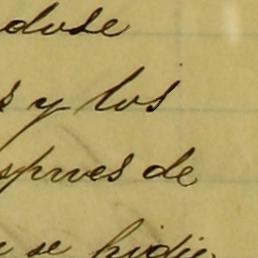 dose
s y los
spues de
se pidie